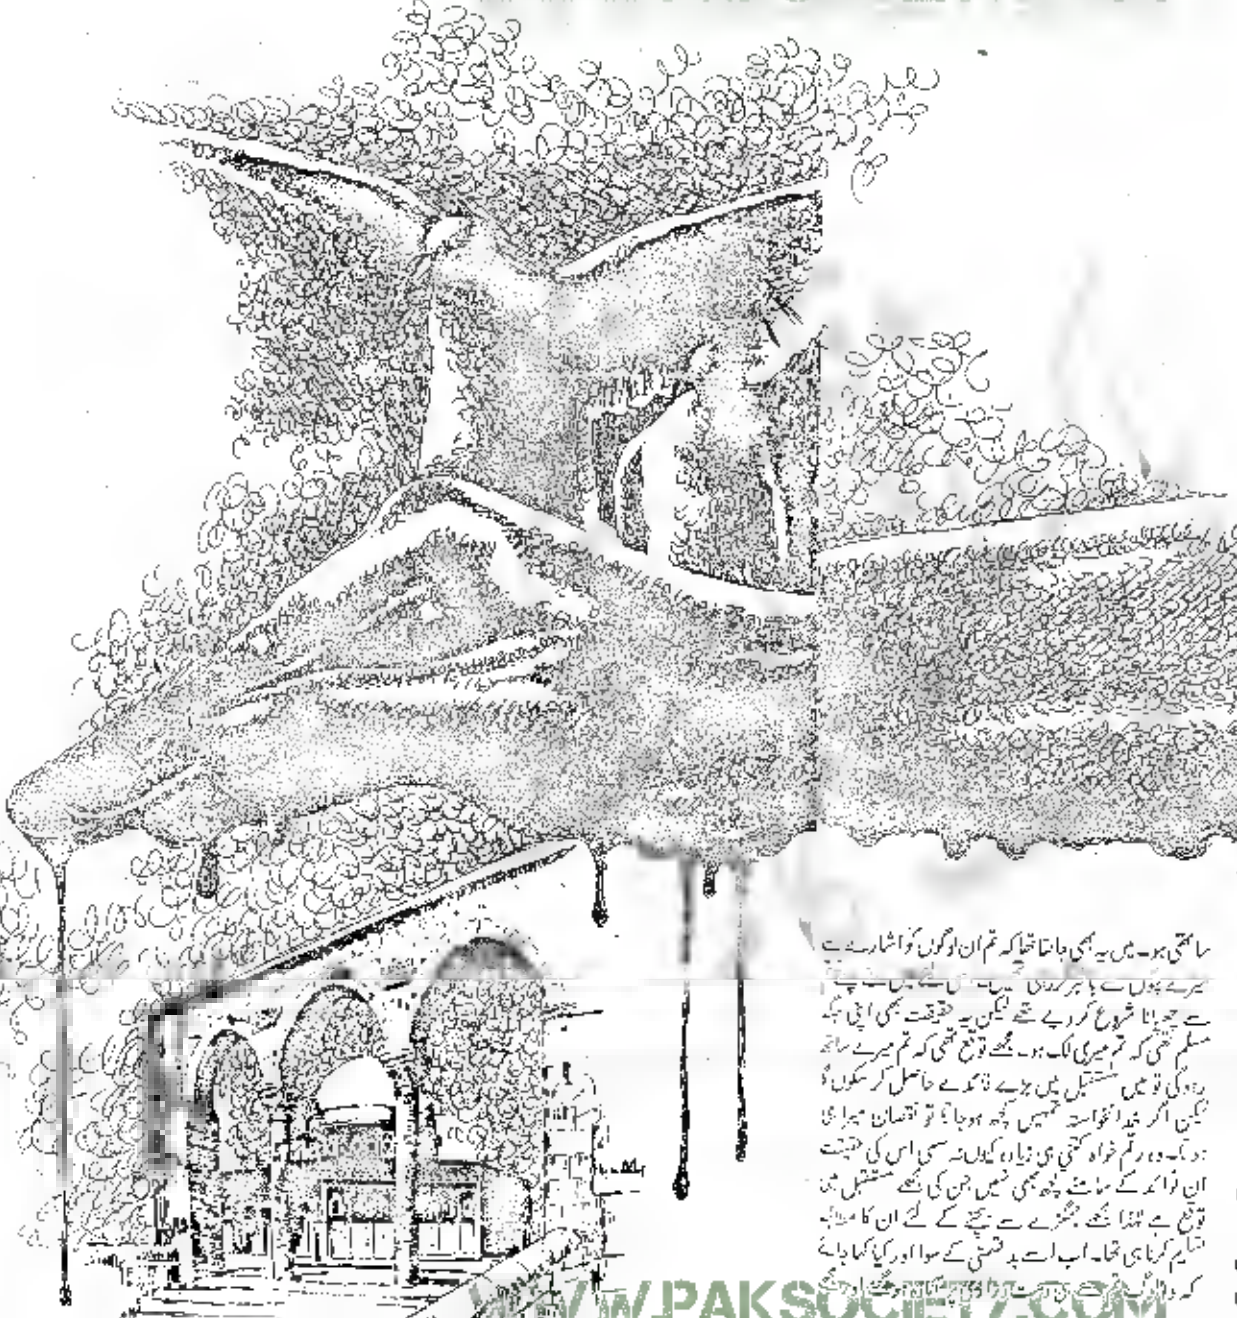 سکتی ہو۔ میں یہ بھی جانتا تھا کہ تم ان لوگوں کو اشارے سے
سے چبوانا شروع کر دیے تھے لیکن یہ حقیقت بھی اپنی جگہ
مسلم تھی کہ تم میری لک ہو۔ مجھے توقع تھی کہ تم میرے ساتھ
رہو گی تو میں مستقبل میں بڑے فائدے حاصل کر سکوں گا
لیکن اگر خدانخواستہ تمہیں کچھ ہو جاتا تو نقصان میرا ہی
ہوتا۔ وہ رقم خواہ کتنی ہی زیادہ کیوں نہ سہی اس کی حیثیت
ان فوائد کے سامنے کچھ بھی نہیں جن کی مجھے مستقبل میں
توقع ہے لہٰذا مجھے جھگڑے سے بچنے کے لئے ان کا مطالبہ
تسلیم کرنا ہی تھا۔ اب اسے بد قسمتی کے سوا اور کیا کہا جائے
WWW.PAKSOCIETY.COM